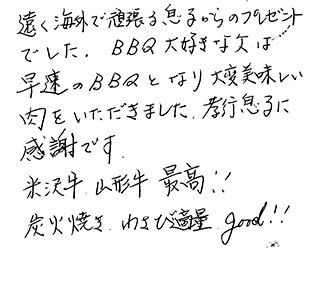 遠く海外で頑張る息子からのプレゼント
でした. BBQ大好きな父は
早速のBBQとなり大変美味しい
肉をいただきました. 孝行息子に
感謝です.
米沢牛. 山形牛 最高!!
炭火焼き. わさび適量. good!!